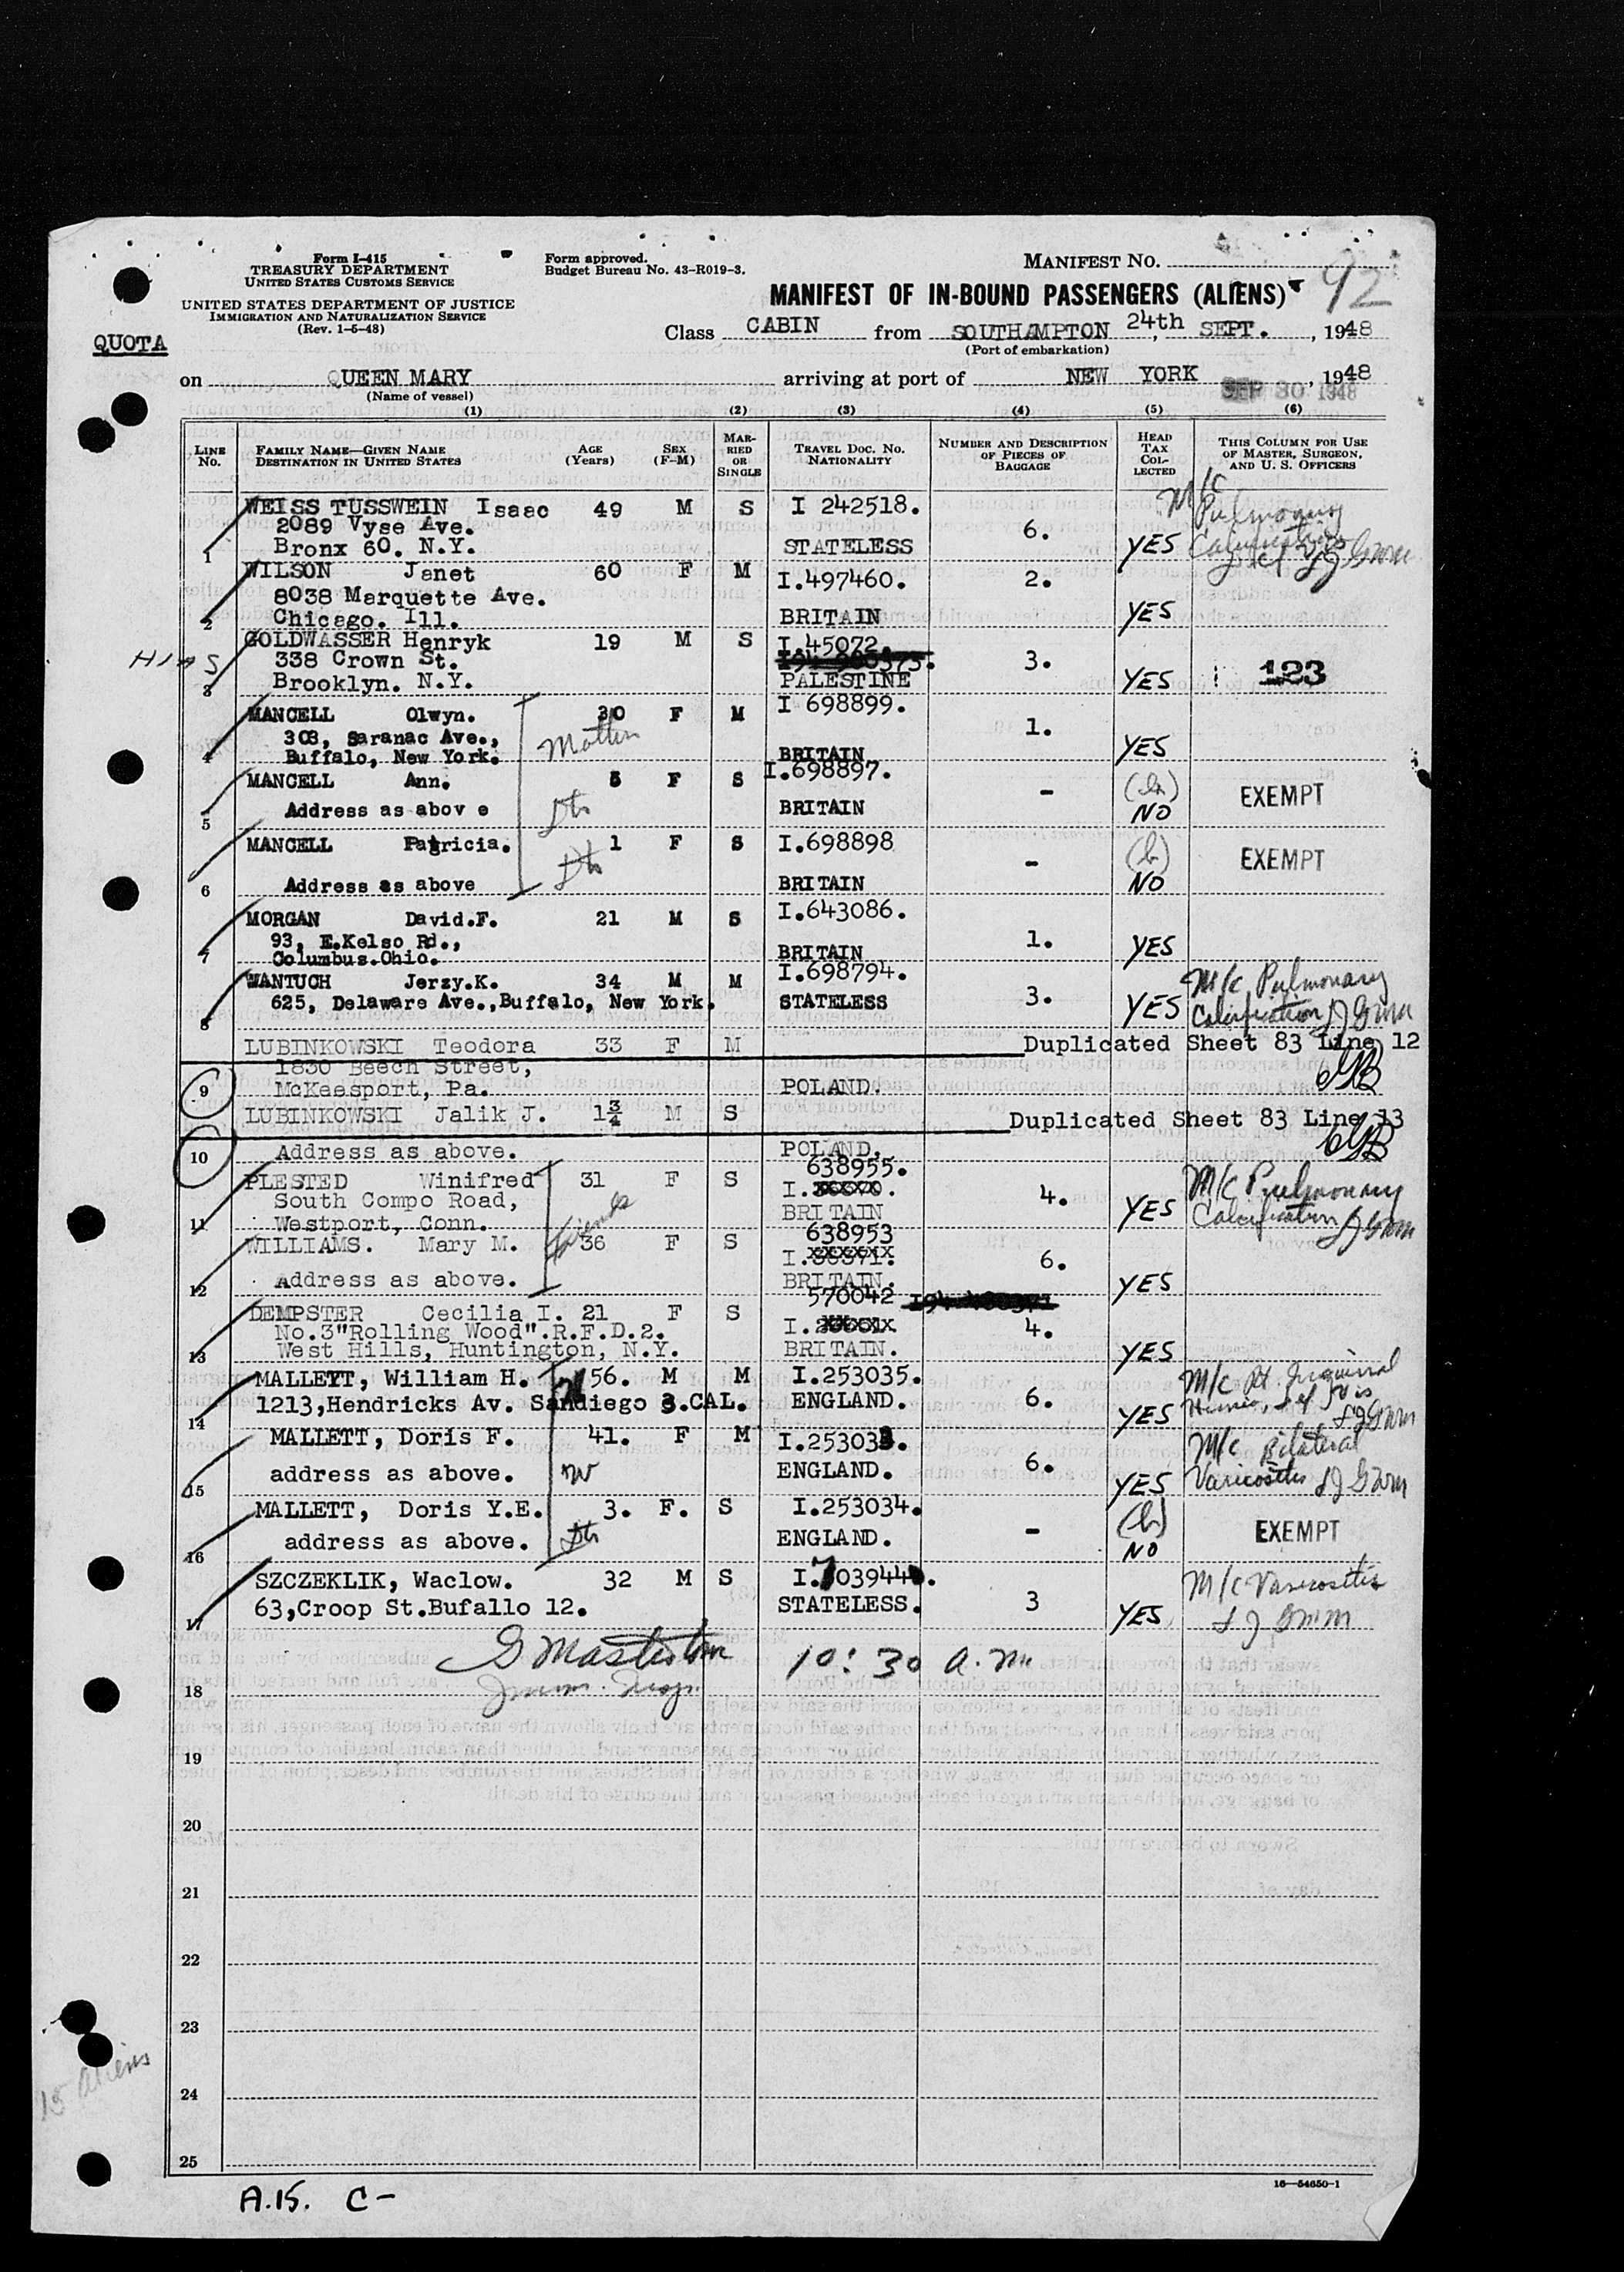 Form I-415
TREASURY DEPARTMENT
UNITED STATES CUSTOMS SERVICE
UNITED STATES DEPARTMENT OF JUSTICE
IMMIGRATION AND NATURALIZATION SERVICE
(Rev. 1-5-48)
Form approved.
Budget Bureau No. 43-R019-3.
MANIFEST NO.
92
MANIFEST OF IN-BOUND PASSENGERS (ALIENS)
QUOTA
Class CABIN from SOUTHAMPTON 24th, SEPT., 1948
(Port of embarkation)
on QUEEN MARY arriving at port of NEW YORK, 1948
SEP 30 1948
(Name of vessel)
(1) (2) (3) (4) (5) (6)
LINE No. FAMILY NAME—GIVEN NAME DESTINATION IN UNITED STATES AGE (Years) SEX (F-M) MARRIED OR SINGLE TRAVEL DOC. NO. NATIONALITY NUMBER AND DESCRIPTION OF PIECES OF BAGGAGE HEAD TAX COLLECTED THIS COLUMN FOR USE OF MASTER, SURGEON, AND U. S. OFFICERS
WEISS TUSSWEIN Isaac 49 M S I 242518. M/C Pulmonary
2089 Vyse Ave. 6. Calcification
1 Bronx 60. N.Y. STATELESS YES
WILSON Janet 60 F M I.497460. 2.
8038 Marquette Ave.
2 Chicago. Ill. BRITAIN YES
GOLDWASSER Henryk 19 M S I.45072.
HIAS 338 Crown St. 3.
3 Brooklyn. N.Y. PALESTINE YES 123
MANCELL Olwyn. 30 F M I 698899.
303, Saranac Ave., Mother 1.
4 Buffalo, New York. BRITAIN YES
MANCELL Ann. 5 F S I.698897. - (h) EXEMPT
5 Address as abov e Dth BRITAIN NO
MANCELL Patricia. 1 F S I.698898 - (h) EXEMPT
6 Address as above Dth BRITAIN NO
MORGAN David.F. 21 M S I.643086.
93, E.Kelso Rd., 1.
7 Columbus.Ohio. BRITAIN YES
WANTUCH Jerzy.K. 34 M M I.698794. M/C Pulmonary
8 625, Delaware Ave.,Buffalo, New York. STATELESS 3. YES Calcification
LUBINKOWSKI Teodora 33 F M Duplicated Sheet 83 Line 12
1830 Beech Street,
9 McKeesport, Pa. POLAND.
LUBINKOWSKI Jalik J. 1¾ M S Duplicated Sheet 83 Line 13
10 Address as above. POLAND.
638955.
PLESTED Winifred 31 F S I. M/C Pulmonary
South Compo Road, friends 4. Calcification
11 Westport, Conn. BRITAIN YES
638953
WILLIAMS. Mary M. 36 F S I. 6.
12 Address as above. BRITAIN. YES
570042
DEMPSTER Cecilia I. 21 F S I.
No.3"Rolling Wood".R.F.D.2. 4.
13 West Hills, Huntington, N.Y. BRITAIN. YES
MALLETT, William H. 56. M M I.253035. M/C Rt. Inguinal
14 1213,Hendricks Av. Sandiego 3.CAL. ENGLAND. 6. YES
MALLETT, Doris F. 41. F M I.253033. M/C Bilateral
15 address as above. W ENGLAND. 6. YES Varicosities
MALLETT, Doris Y.E. 3. F. S I.253034. (h) EXEMPT
16 address as above. Dth ENGLAND. - NO
SZCZEKLIK, Waclow. 32 M S M/C Varicosities
17 63,Croop St.Bufallo 12. STATELESS. 3 YES
10:30 a.m.
18
19
20
21
22
23
24
25
15 aliens
A.15. C-
16—54650-1